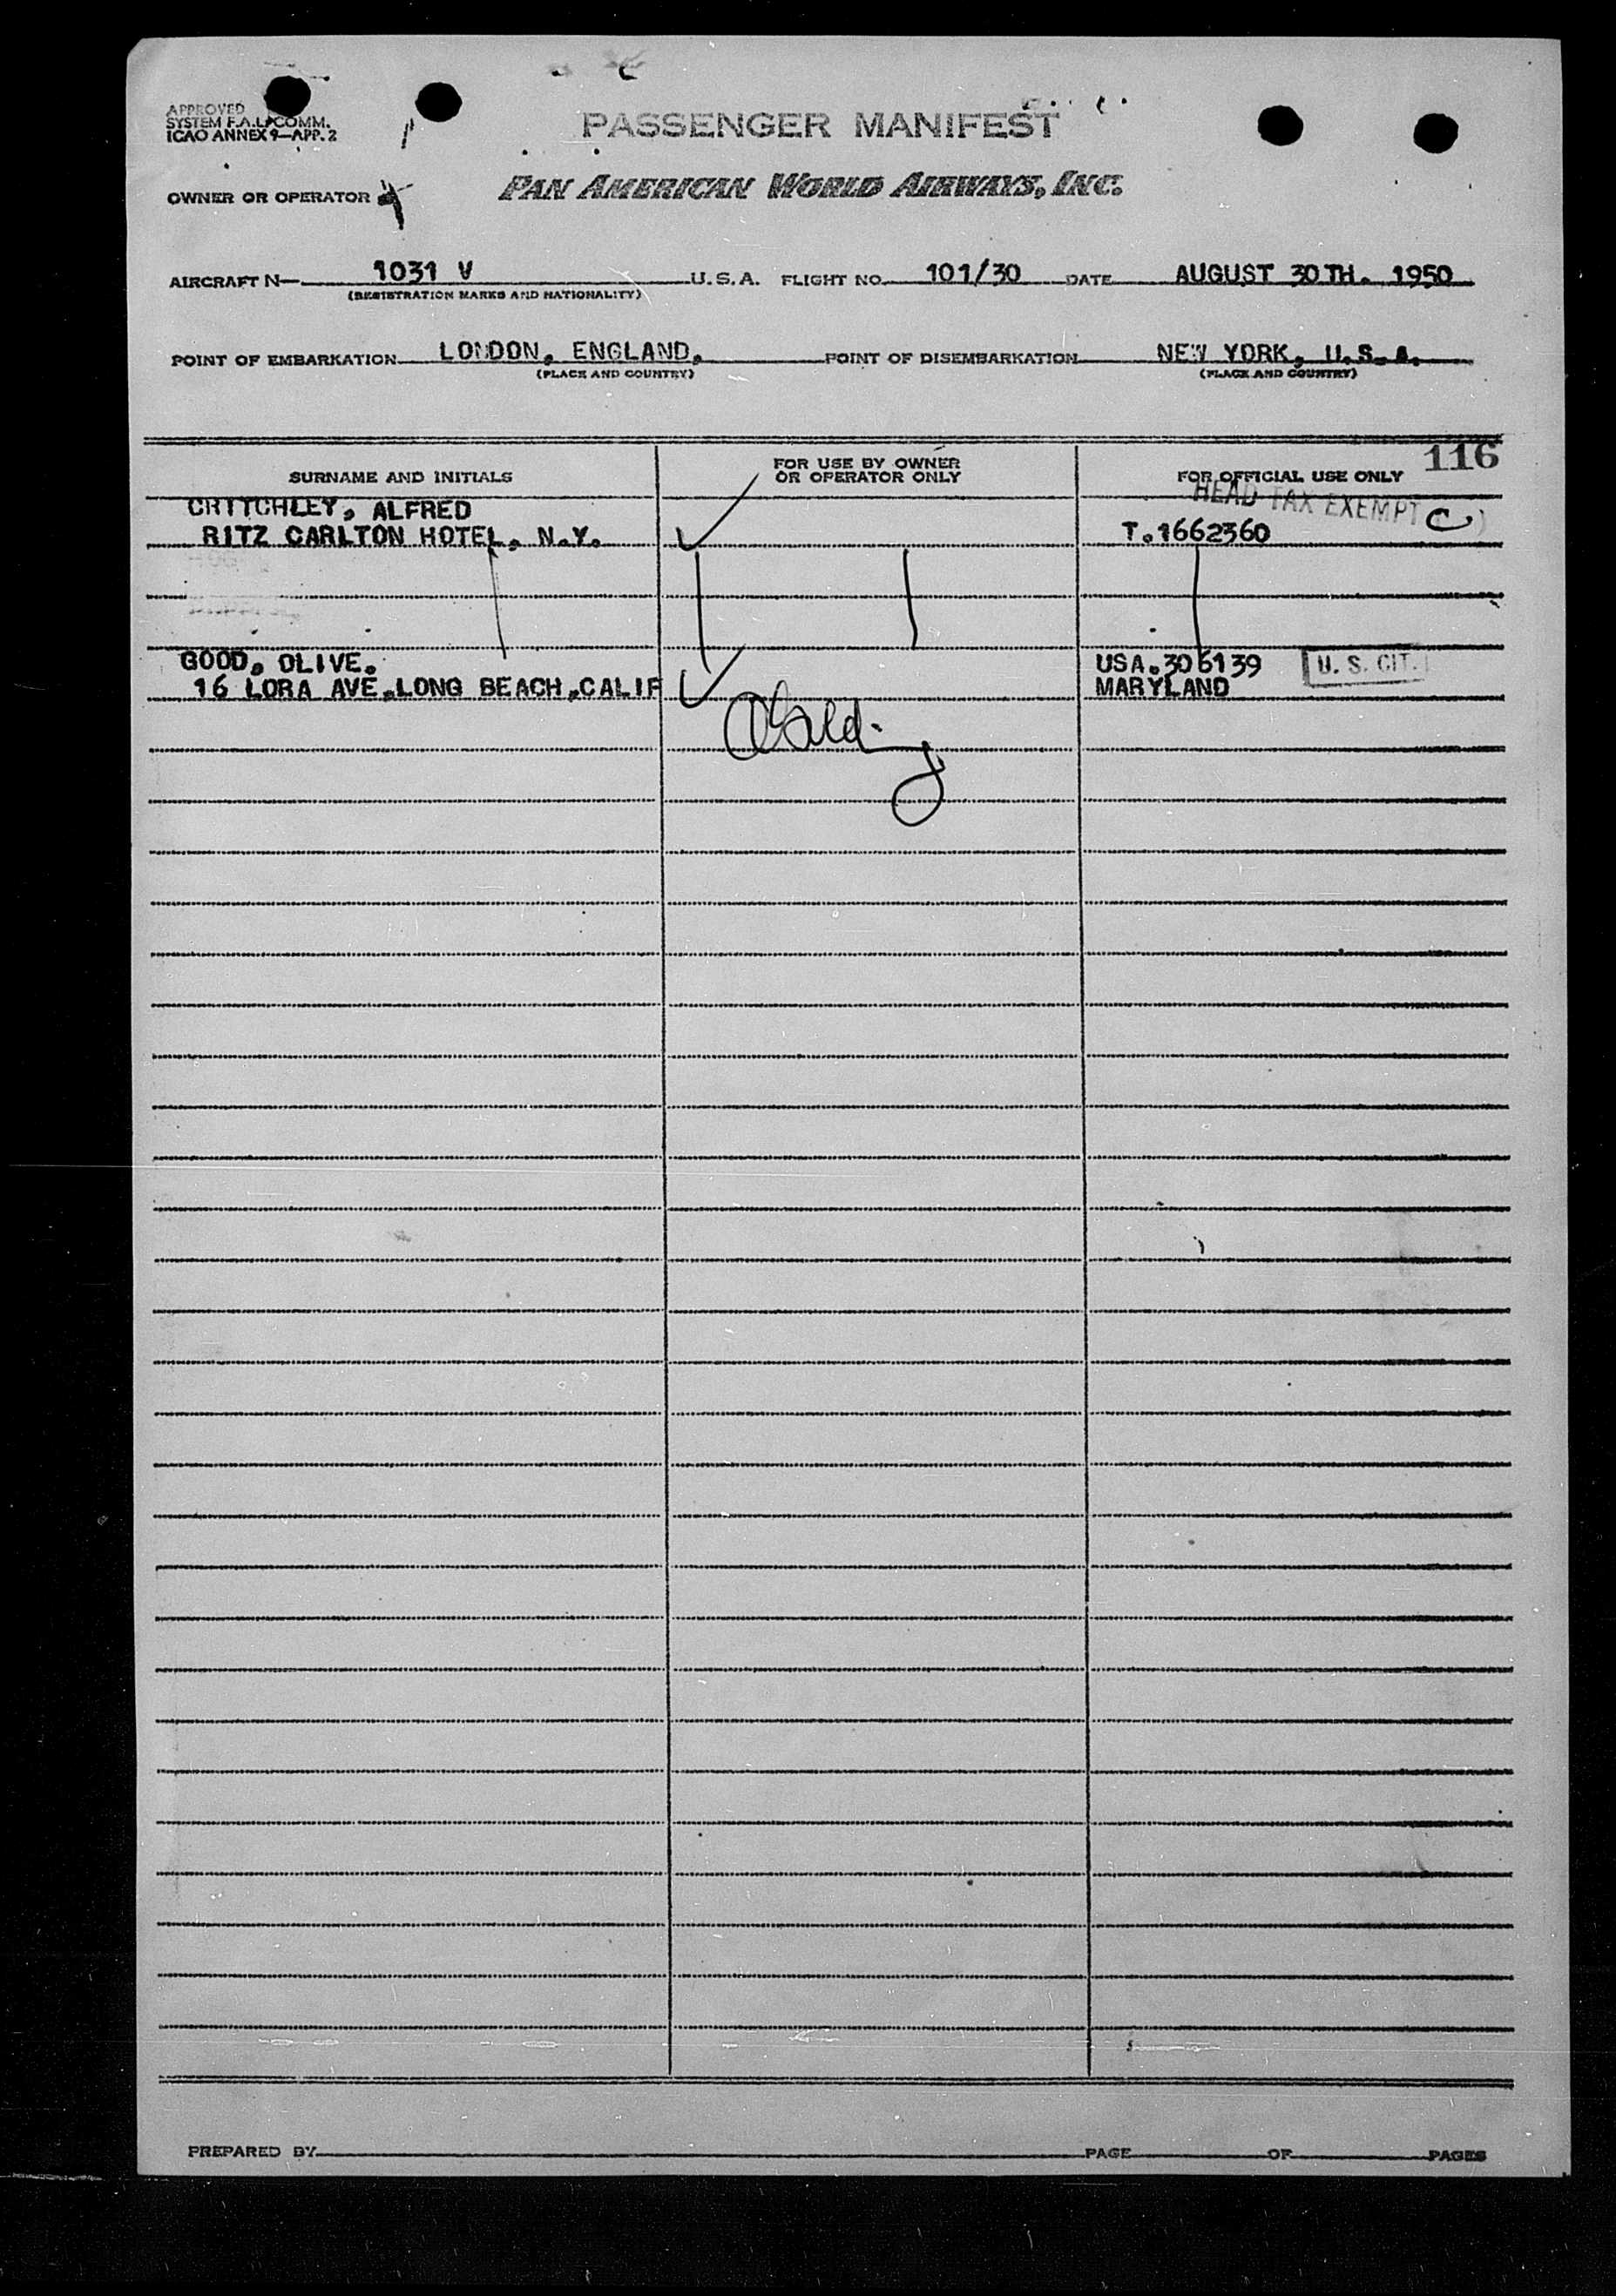 APPROVED
SYSTEM F.A.L. COMM.
ICAO ANNEX 9—APP. 2
PASSENGER MANIFEST
OWNER OR OPERATOR
PAN AMERICAN WORLD AIRWAYS, INC.
AIRCRAFT N— 1031 V U.S.A. FLIGHT NO. 101/30 DATE AUGUST 30TH. 1950
(REGISTRATION MARKS AND NATIONALITY)
POINT OF EMBARKATION LONDON, ENGLAND, POINT OF DISEMBARKATION NEW YORK, U.S.A.
(PLACE AND COUNTRY) (PLACE AND COUNTRY)
116
SURNAME AND INITIALS
FOR USE BY OWNER
OR OPERATOR ONLY
FOR OFFICIAL USE ONLY
HEAD TAX EXEMPT C
CRITCHLEY, ALFRED
RITZ CARLTON HOTEL, N.Y. T.1662360
GOOD, OLIVE. USA.306139 U. S. CIT.
16 LORA AVE,LONG BEACH,CALIF MARYLAND
PREPARED BY PAGE OF PAGES